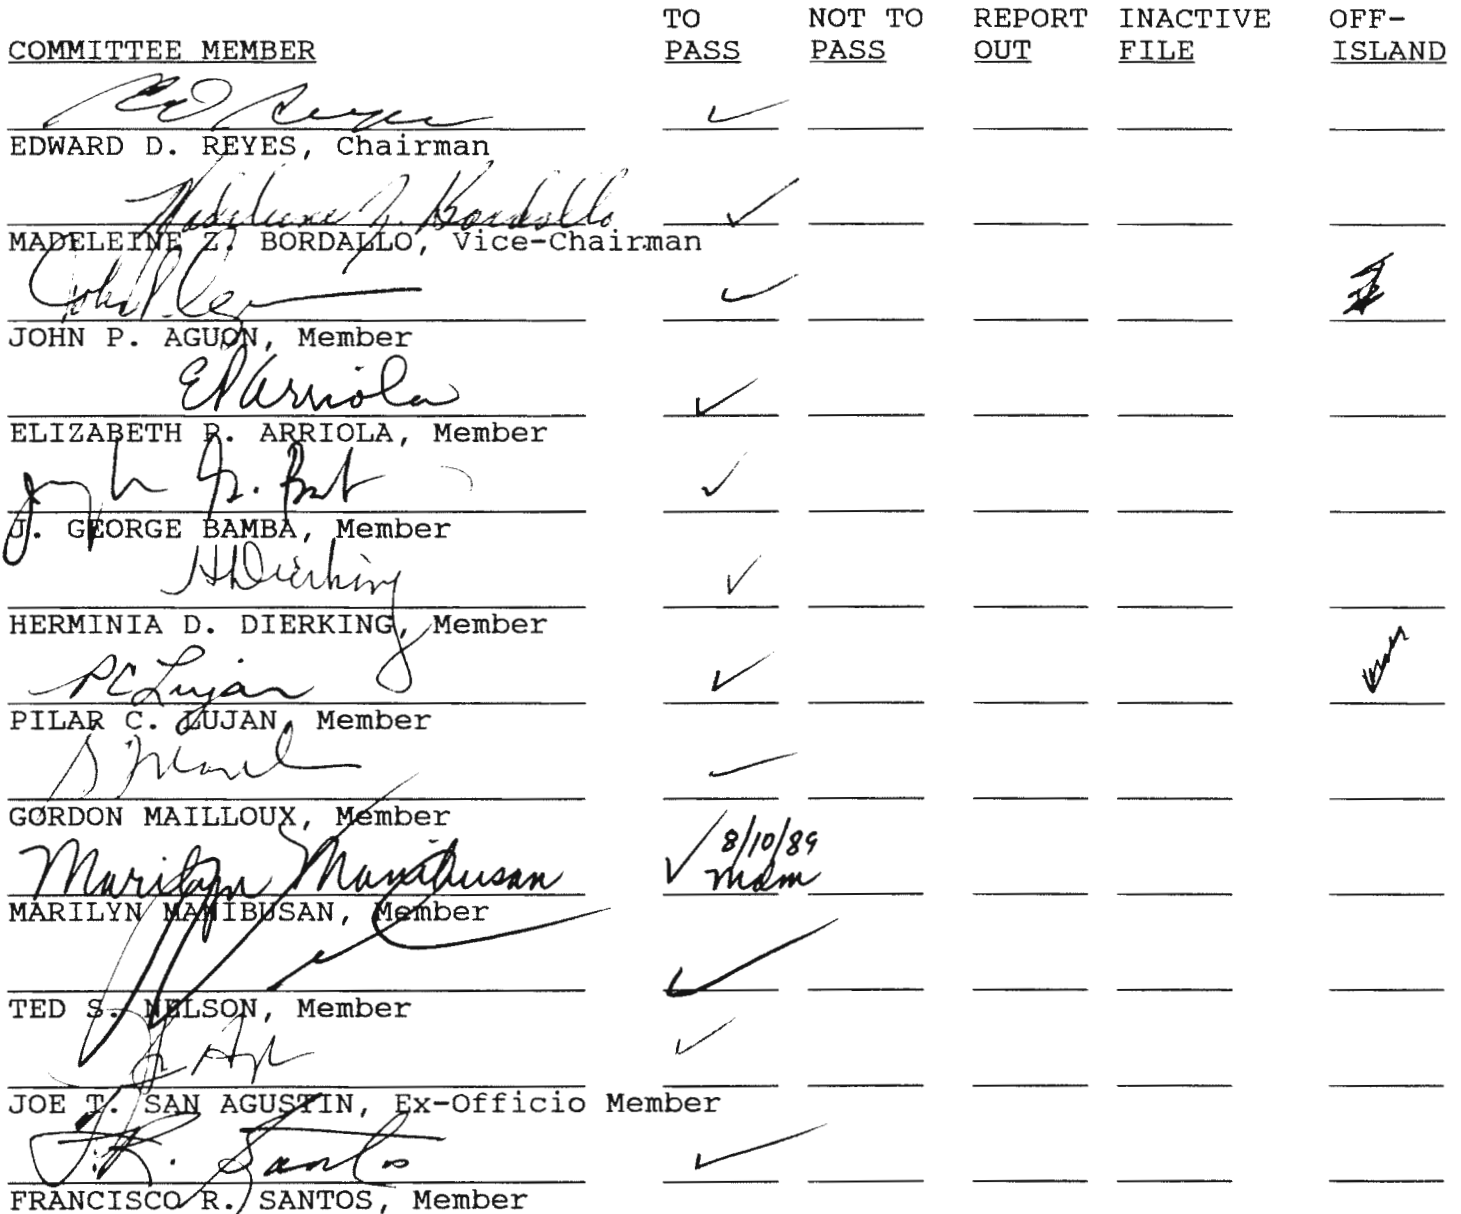 TO NOT TO REPORT INACTIVE OFF-
COMMITTEE MEMBER PASS PASS OUT FILE ISLAND
EDWARD D. REYES, Chairman
Madeleine Z. Bordallo
MADELEINE Z. BORDALLO, Vice-Chairman
JOHN P. AGUON, Member
EPArriola
ELIZABETH P. ARRIOLA, Member
J. GEORGE BAMBA, Member
HDierking
HERMINIA D. DIERKING, Member
PC Lujan
PILAR C. LUJAN, Member
GORDON MAILLOUX, Member
8/10/89
Marilyn Manibusan mdm
MARILYN MANIBUSAN, Member
TED S. NELSON, Member
JOE T. SAN AGUSTIN, Ex-Officio Member
F.R. Santos
FRANCISCO R. SANTOS, Member